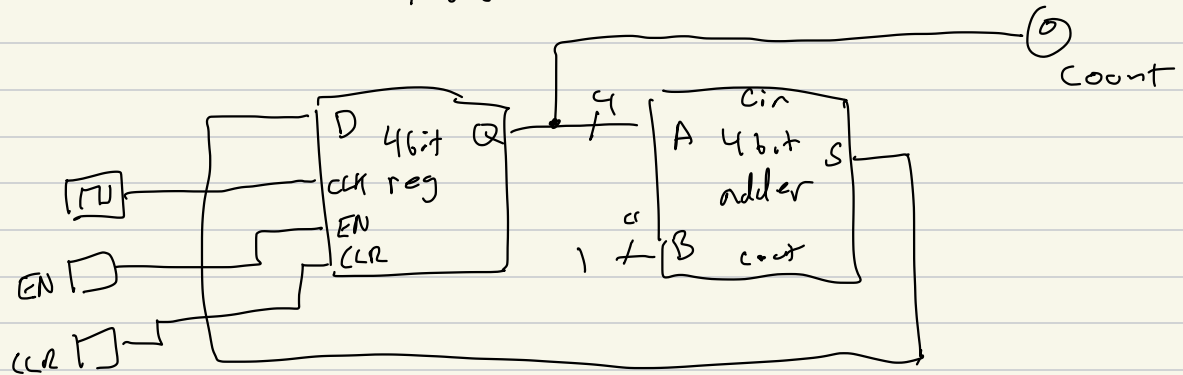 Count
D 4bit Q
CLK reg
EN
CLR
4
Cin
A 4bit S
adder
B cout
1
EN
CLR